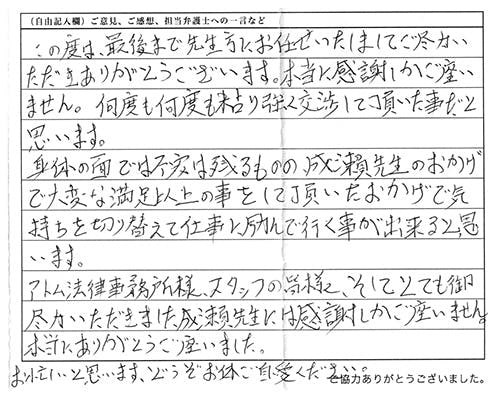 (自由記入欄)ご意見、ご感想、担当弁護士への一言など
この度は、最後まで先生方にお任せいたしましてご尽力い
ただきありがとうございます。本当に感謝しかご座い
ません。何度も何度も粘り強く交渉して頂いた事だと
思います。
身体の面では不安は残るものの、成瀬先生のおかげ
で大変な満足以上の事をして頂いたおかげで気
持ちを切り替えて仕事に励んで行く事が出来ると思
います。
アトム法律事務所様、スタッフの皆様、そしてとても御
尽力いただきました成瀬先生には感謝しかご座いません。
本当にありがとうご座いました。
お忙しいと思います、どうぞお体ご自愛ください。
ご協力ありがとうございました。